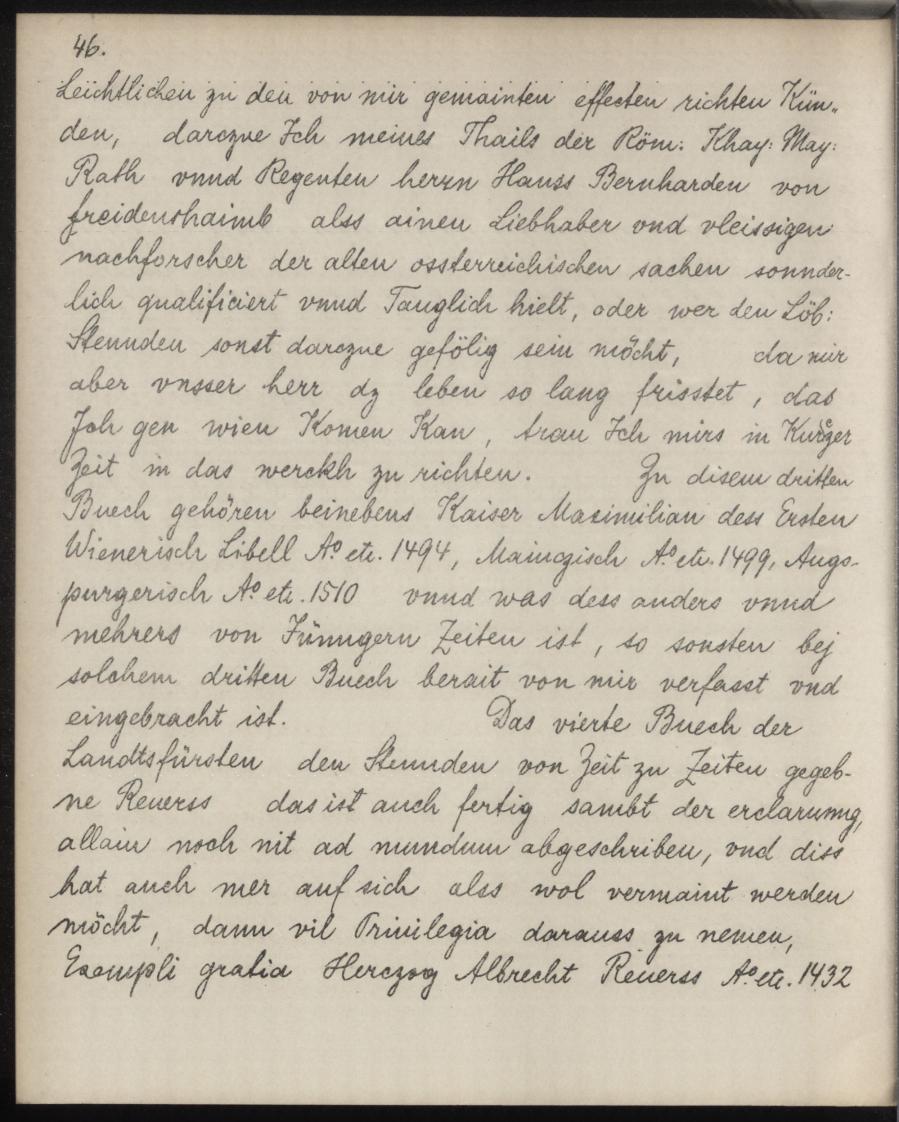 46.
Leichtlichen zu den von mir gemainten effecten richten Kün„
den, darczue Ich meines Thails der Röm: Khay: May:
Rath vnnd Regenten herrn Hanss Bernharden von
freidenshaimb alss ainen Liebhaber vnd vleissigen
nachforscher der alten ossterreichischen sachen sonnder-
lich qualificiert vnnd Tauglich hielt, oder wer den Löb:
Stennden sonst darczue gefölig sein möcht, da mir
aber vnsser herr dz leben so lang frisstet, das
Ich gen wien Komen Kan, trau Ich mirs in Kurczer
Zeit in das werckh zu richten. Zu disem dritten
Buech gehören beinebens Kaiser Maximilian dess Ersten
Wienerisch Libell Aº etc. 1494, Mainczisch Aº etc. 1499, Augs-
purgerisch Aº etc. 1510 vnnd was dess anders vnnd
mehrers von Jünngern Zeiten ist, so sonsten bej
solchem dritten Buech berait von mir verfasst vnd
eingebracht ist. Das vierte Buech der
Landtsfürsten den Stennden von Zeit zu Zeiten gegeb-
ne Reuerss das ist auch fertig sambt der erclarunng,
allain noch nit ad mundum abgeschriben, vnd diss
hat auch mer auf sich alss wol vermaint werden
möcht, dann vil Priuilegia darauss zu nemen,
Exempli gratia Herczog Albrecht Reuerss Aº etc. 1432